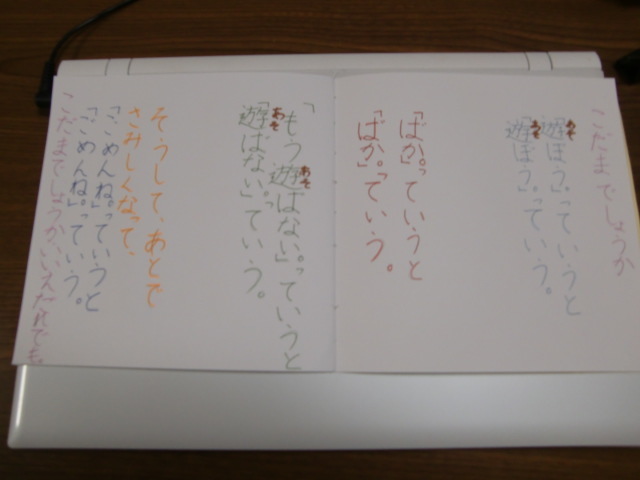 こだまでしょうか
「遊ぼう。」っていうと
「遊ぼう。」っていう。
「ばか。」っていうと
「ばか。」っていう。
「もう遊ばない。」っていうと
「遊ばない。」っていう。
そうして、あとで
さみしくなって、
「ごめんね。」っていうと
「ごめんね。」っていう。
こだまでしょうか、いいえだれでも